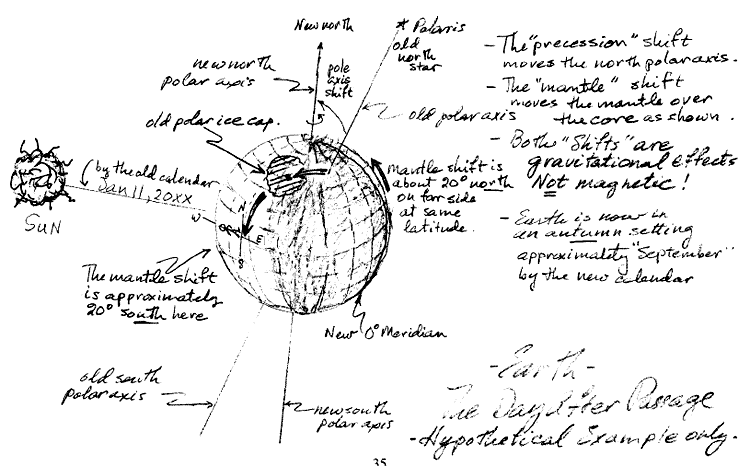 New north
* Polaris
old
north
star
new north
polar axis
pole
axis
shift
old polar axis
old polar ice cap.
by the old calendar
Jan 11, 20XX
SUN
N
W
E
S
mantle shift is
about 20° north
on far side
at same
latitude.
The mantle shift
is approximately
20° south here
New 0° Meridian
old south
polar axis
new south
polar axis
- The "precession" shift
moves the north polar axis.
- The "mantle" shift
moves the mantle over
the core as shown.
- Both "Shifts" are
gravitational effects
Not magnetic!
- Earth is now in
an autumn setting
approximately "September"
by the new calendar
- Earth -
The Day After Passage
- Hypothetical Example only.
35